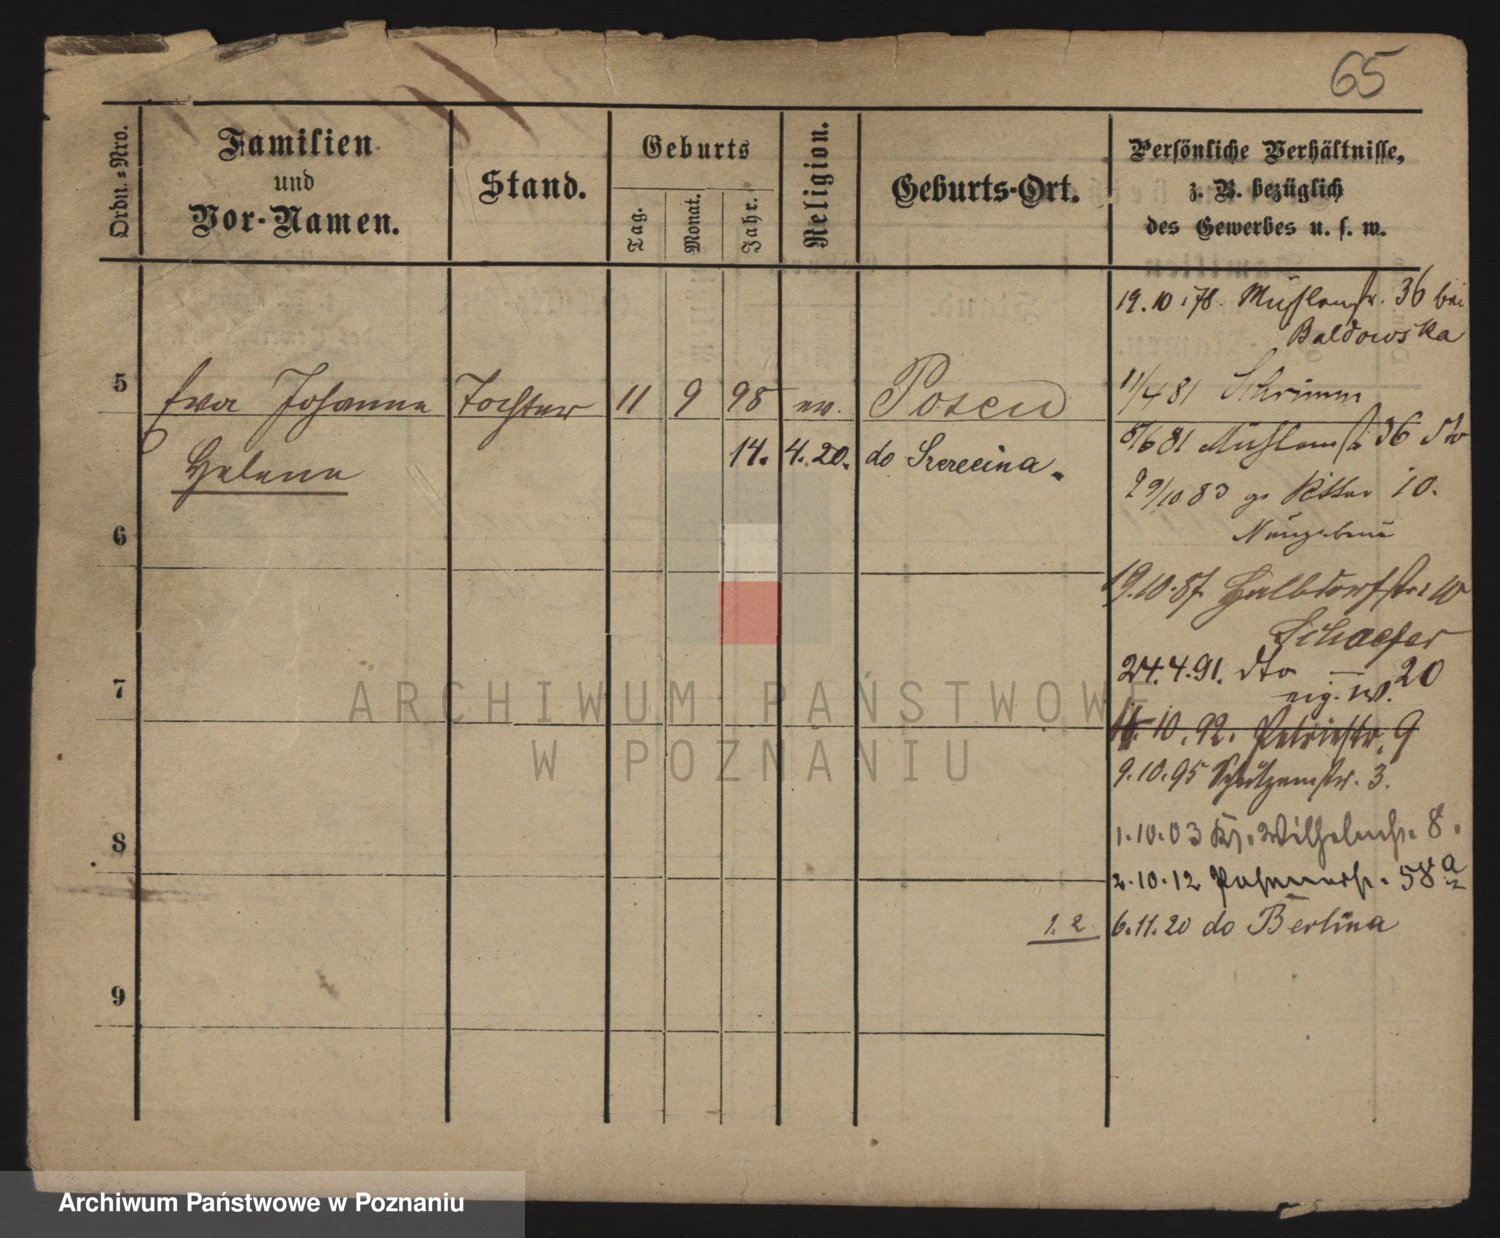 65
Ordn.=Nro.
Familien
und
Vor-Namen.
Stand.
Geburts
Tag.
Monat.
Jahr.
Religion.
Geburts-Ort.
Persönliche Verhältnisse,
z. B. bezüglich
des Gewerbes u. s. w.
19.10.78. Mühlenstr. 36 bei
Baldowska
5 Eva Johanna Tochter 11 9 98 ev. Posen
11/4 81 Schrimm
Helene
14. 4. 20. do Szczecina.
8/6 81 Mühlenstr 36 dto
29/10 83 gr Ritter 10.
6
19.10.87. Halbdorfstr: 10
Schaefer
7
24.4.91. dto — 20
eig. W.
10.92. Petristr. 9
9.10.95 Schützenstr. 3.
8
1.10.03 Wilhelmstr. 8.
2.10.12 58a
1.2 6.11.20 do Berlina
9
ARCHIWUM PAŃSTWOWE
W POZNANIU
Archiwum Państwowe w Poznaniu